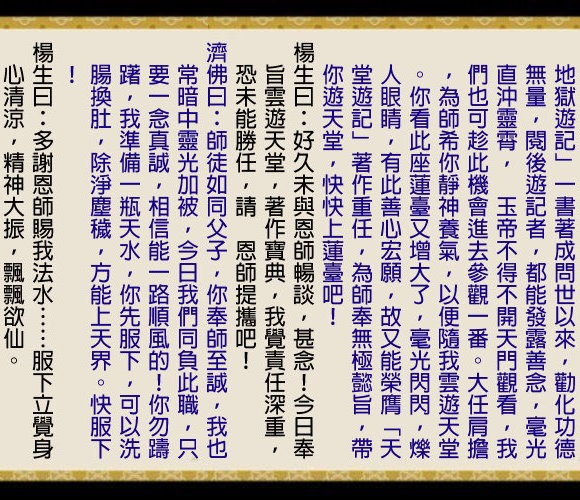 地獄遊記」一書著成問世以來，勸化功德
無量，閱後遊記者，都能發露善念，毫光
直沖靈霄，　玉帝不得不開天門觀看，我
們也可趁此機會進去參觀一番。大任肩擔
，為師希你靜神養氣，以便隨我雲遊天堂
。你看此座蓮臺又增大了，毫光閃閃，爍
人眼睛，有此善心宏願，故又能榮膺「天
堂遊記」著作重任，為師奉無極懿旨，帶
你遊天堂，快快上蓮臺吧！
楊生曰：好久未與恩師暢談，甚念！今日奉
旨雲遊天堂，著作寶典，我覺責任深重，
恐未能勝任，請　恩師提攜吧！
濟佛曰：師徒如同父子，你奉師至誠，我也
常暗中靈光加被，今日我們同負此職，只
要一念真誠，相信能一路順風的！你勿躊
躇，我準備一瓶天水，你先服下，可以洗
腸換肚，除淨塵穢，方能上天界。快服下
！
楊生曰：多謝恩師賜我法水……服下立覺身
心清涼，精神大振，飄飄欲仙。